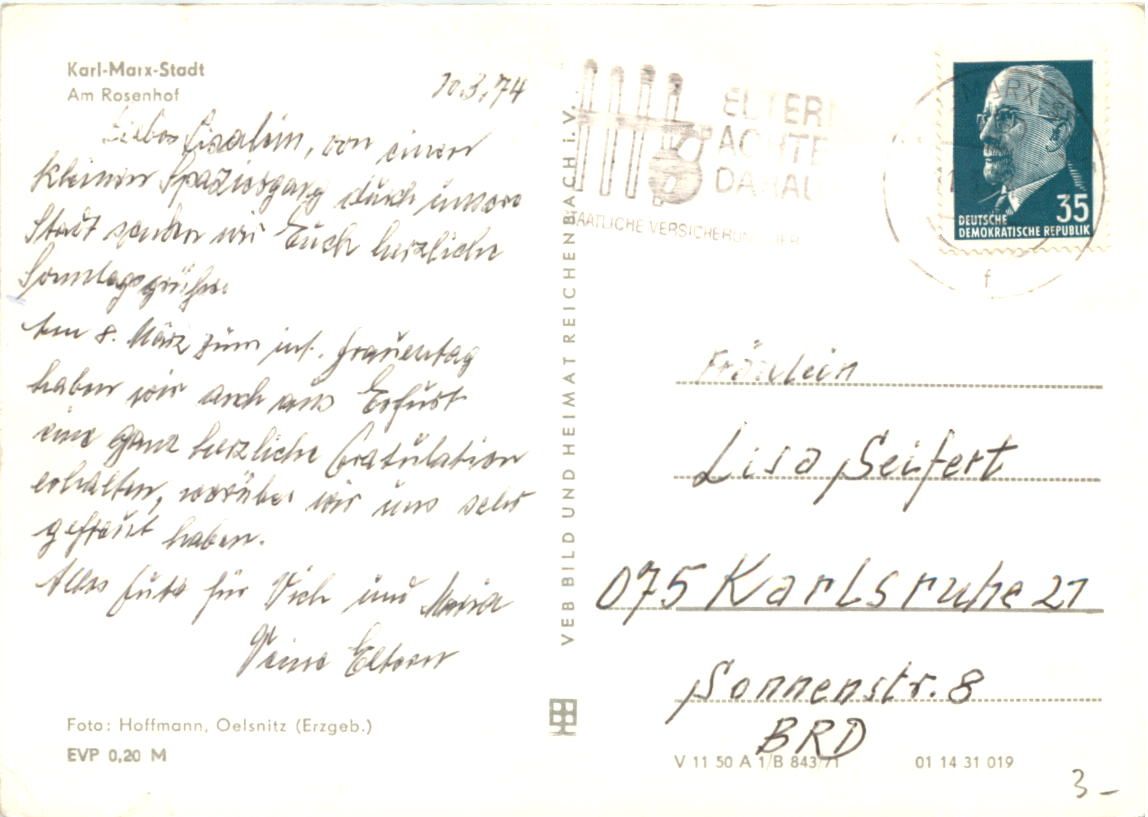 Karl-Marx-Stadt
Am Rosenhof
10.3.74
Liebes Lisalein, von einen
kleinen Spaziergang durch unsere
Stadt senden wir Euch herzliche
Sonntagsgrüße.
Am 8. März zum int. Frauentag
haben wir auch aus Erfurt
eine ganz herzliche Gratulation
erhalten, worüber wir uns sehr
gefreut haben.
Alles Gute für Dich und Maria
Deine Eltern
Foto: Hoffmann, Oelsnitz (Erzgeb.)
EVP 0,20 M
VEB BILD UND HEIMAT REICHENBACH i. V.
ELTERN
ACHTE
DARAU
STAATLICHE VERSICHERUNG DER
MARX
f
35
DEUTSCHE
DEMOKRATISCHE REPUBLIK
Fräulein
Lisa Seifert
075 Karlsruhe 21
Sonnenstr. 8
BRD
V 11 50 A 1/B 843/71
01 14 31 019
3.-